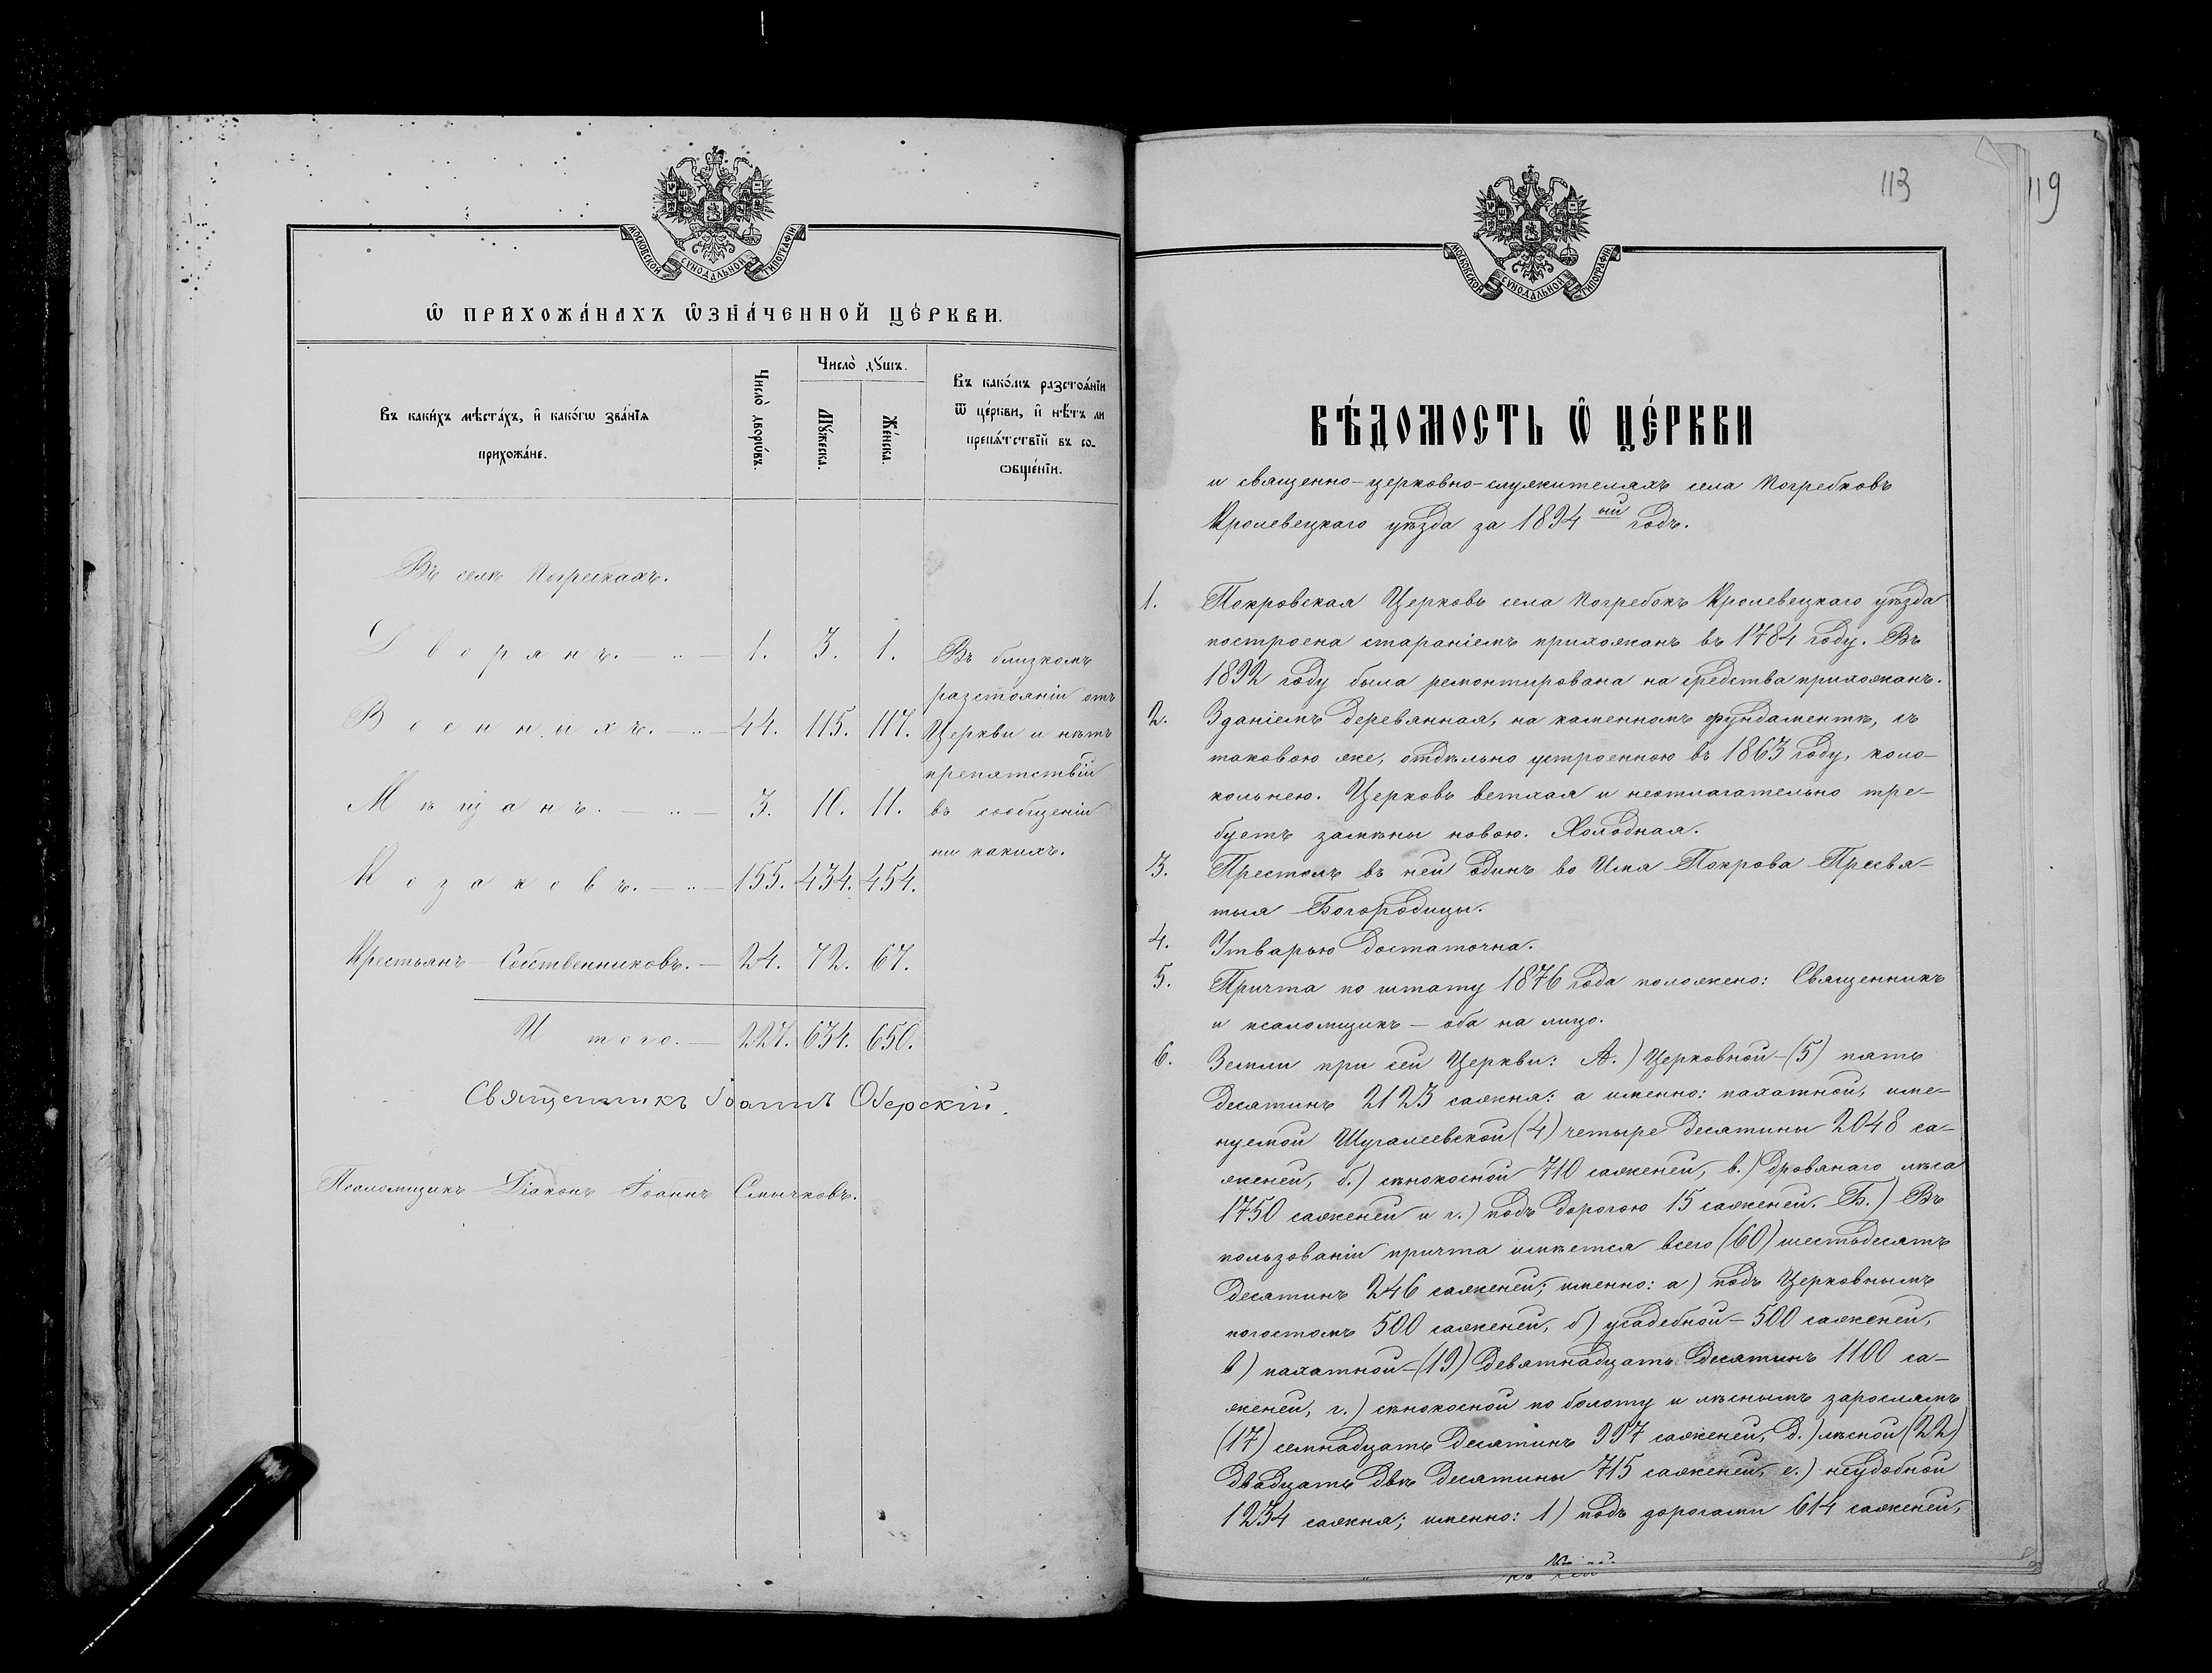 МОСКОВСКОЙ СѴНОДАЛЬНОЙ ТИПОГРАФІИ
Ѿ ПРИХОЖА́НАХЪ Ѡ҆ЗНА́ЧЕННОЙ ЦЕ́РКВИ.
Въ каки́хъ мѣста́хъ, и҆ како́гѡ зва́нїѧ
прихожа́не.
Число̀ дворѡ́въ.
Число̀ дꙋ́шъ.
Мꙋ́жеска.
Же́нска.
Въ како́мъ разстоѧ́нїи
ѿ це́ркви, и҆ нѣ́тъ ли
препѧ́тствїй въ со-
ѻбще́нїи.
Въ селѣ Погребкахъ.
Дворянъ. — „ — 1. 3. 1.
Военныхъ. — „ — 44. 115. 117.
Мѣщанъ. — „ — 3. 10. 11.
Козаковъ. — „ — 155. 434. 454.
Крестьянъ Собственниковъ. — 24. 72. 67.
Итого. — 227. 634. 650.
Въ близкомъ
разстояніи отъ
Церкви и нѣтъ
препятствій
въ сообщеніи
ни какихъ.
Священникъ Іоаннъ
Псаломщикъ Діаконъ Іоаннъ Смычковъ.
113
119
МОСКОВСКОЙ СѴНОДАЛЬНОЙ ТИПОГРАФІИ
ВѢ́ДОМОСТЬ Ѡ҆ ЦЕ́РКВИ
и священно-церковно-служителяхъ села Погребковъ
Кролевецкаго уѣзда за 1894ый годъ.
1. Покровская Церковь села Погребокъ Кролевецкаго уѣзда
построена стараніемъ прихожанъ въ 1784 году. Въ
1892 году была ремонтирована на средства прихожанъ.
2. Зданіемъ деревянная, на каменномъ фундаментѣ, съ
таковою же, отдѣльно устроенною въ 1863 году, коло-
кольнею. Церковь ветхая и неотлагательно тре-
буетъ замѣны новою. Холодная.
3. Престолъ въ ней одинъ во Имя Покрова Пресвя-
тыя Богородицы.
4. Утварью достаточна.
5. Причта по штату 1876 года положено: Священникъ
и псаломщикъ — оба на лицо.
6. Земли при сей Церкви: А.) Церковной — (5) пять
десятинъ 2123 сажня: а именно: пахатной, име-
нуемой Шугалеевской (4) четыре десятины 2048 са-
женей, б.) сѣнокосной 710 саженей, в.) дровянаго лѣса
1750 саженей и г.) подъ дорогою 15 саженей. Б.) Въ
пользованіи причта имѣется всего (60) шестьдесятъ
десятинъ 246 саженей; именно: а) подъ Церковнымъ
погостомъ 500 саженей, б) усадебной — 500 саженей,
в) пахатной — (19) девятнадцать десятинъ 1100 са-
женей, г.) сѣнокосной по болоту и лѣснымъ зарослямъ
(17) семнадцать десятинъ 997 саженей, д.) лѣсной (22)
двадцать двѣ десятины 715 саженей, е.) неудобной
1234 сажня; именно: 1) подъ дорогами 614 саженей,